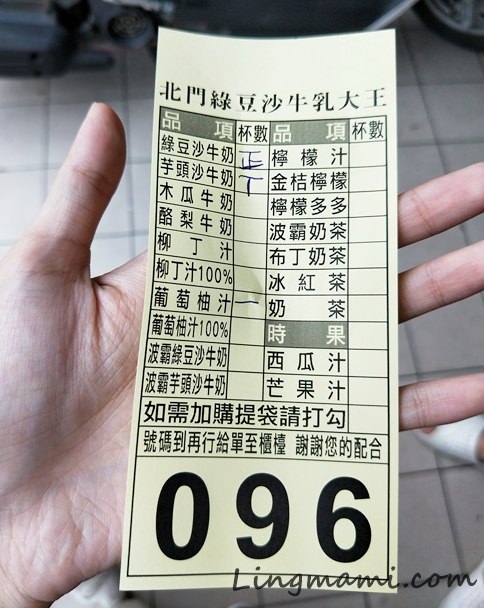 北門綠豆沙牛乳大王
品項 杯數 品項 杯數
綠豆沙牛奶 正 檸檬汁
芋頭沙牛奶 丅 金桔檸檬
木瓜牛奶 檸檬多多
酪梨牛奶 波霸奶茶
柳丁汁 布丁奶茶
柳丁汁100% 冰紅茶
葡萄柚汁 一 奶茶
葡萄柚汁100% 時果
波霸綠豆沙牛奶 西瓜汁
波霸芋頭沙牛奶 芒果汁
如需加購提袋請打勾
號碼到再行給單至櫃檯 謝謝您的配合
096
Lingmami.com